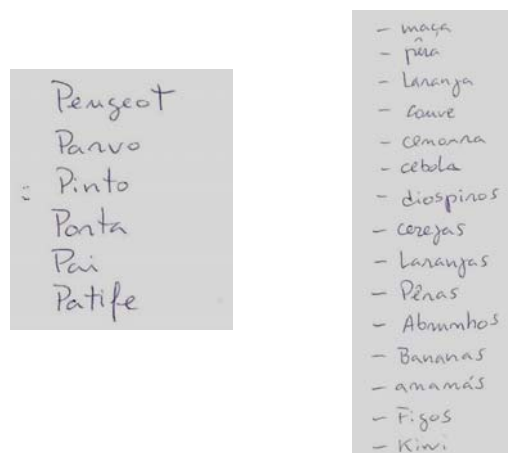 Peugeot
Parvo
Pinto
Porta
Pai
Patife
- maça
- pêra
- Laranja
- couve
- cenoura
- cebola
- diospiros
- cerejas
- Laranjas
- Pêras
- Abrunhos
- Bananas
- ananás
- Figos
- Kiwi